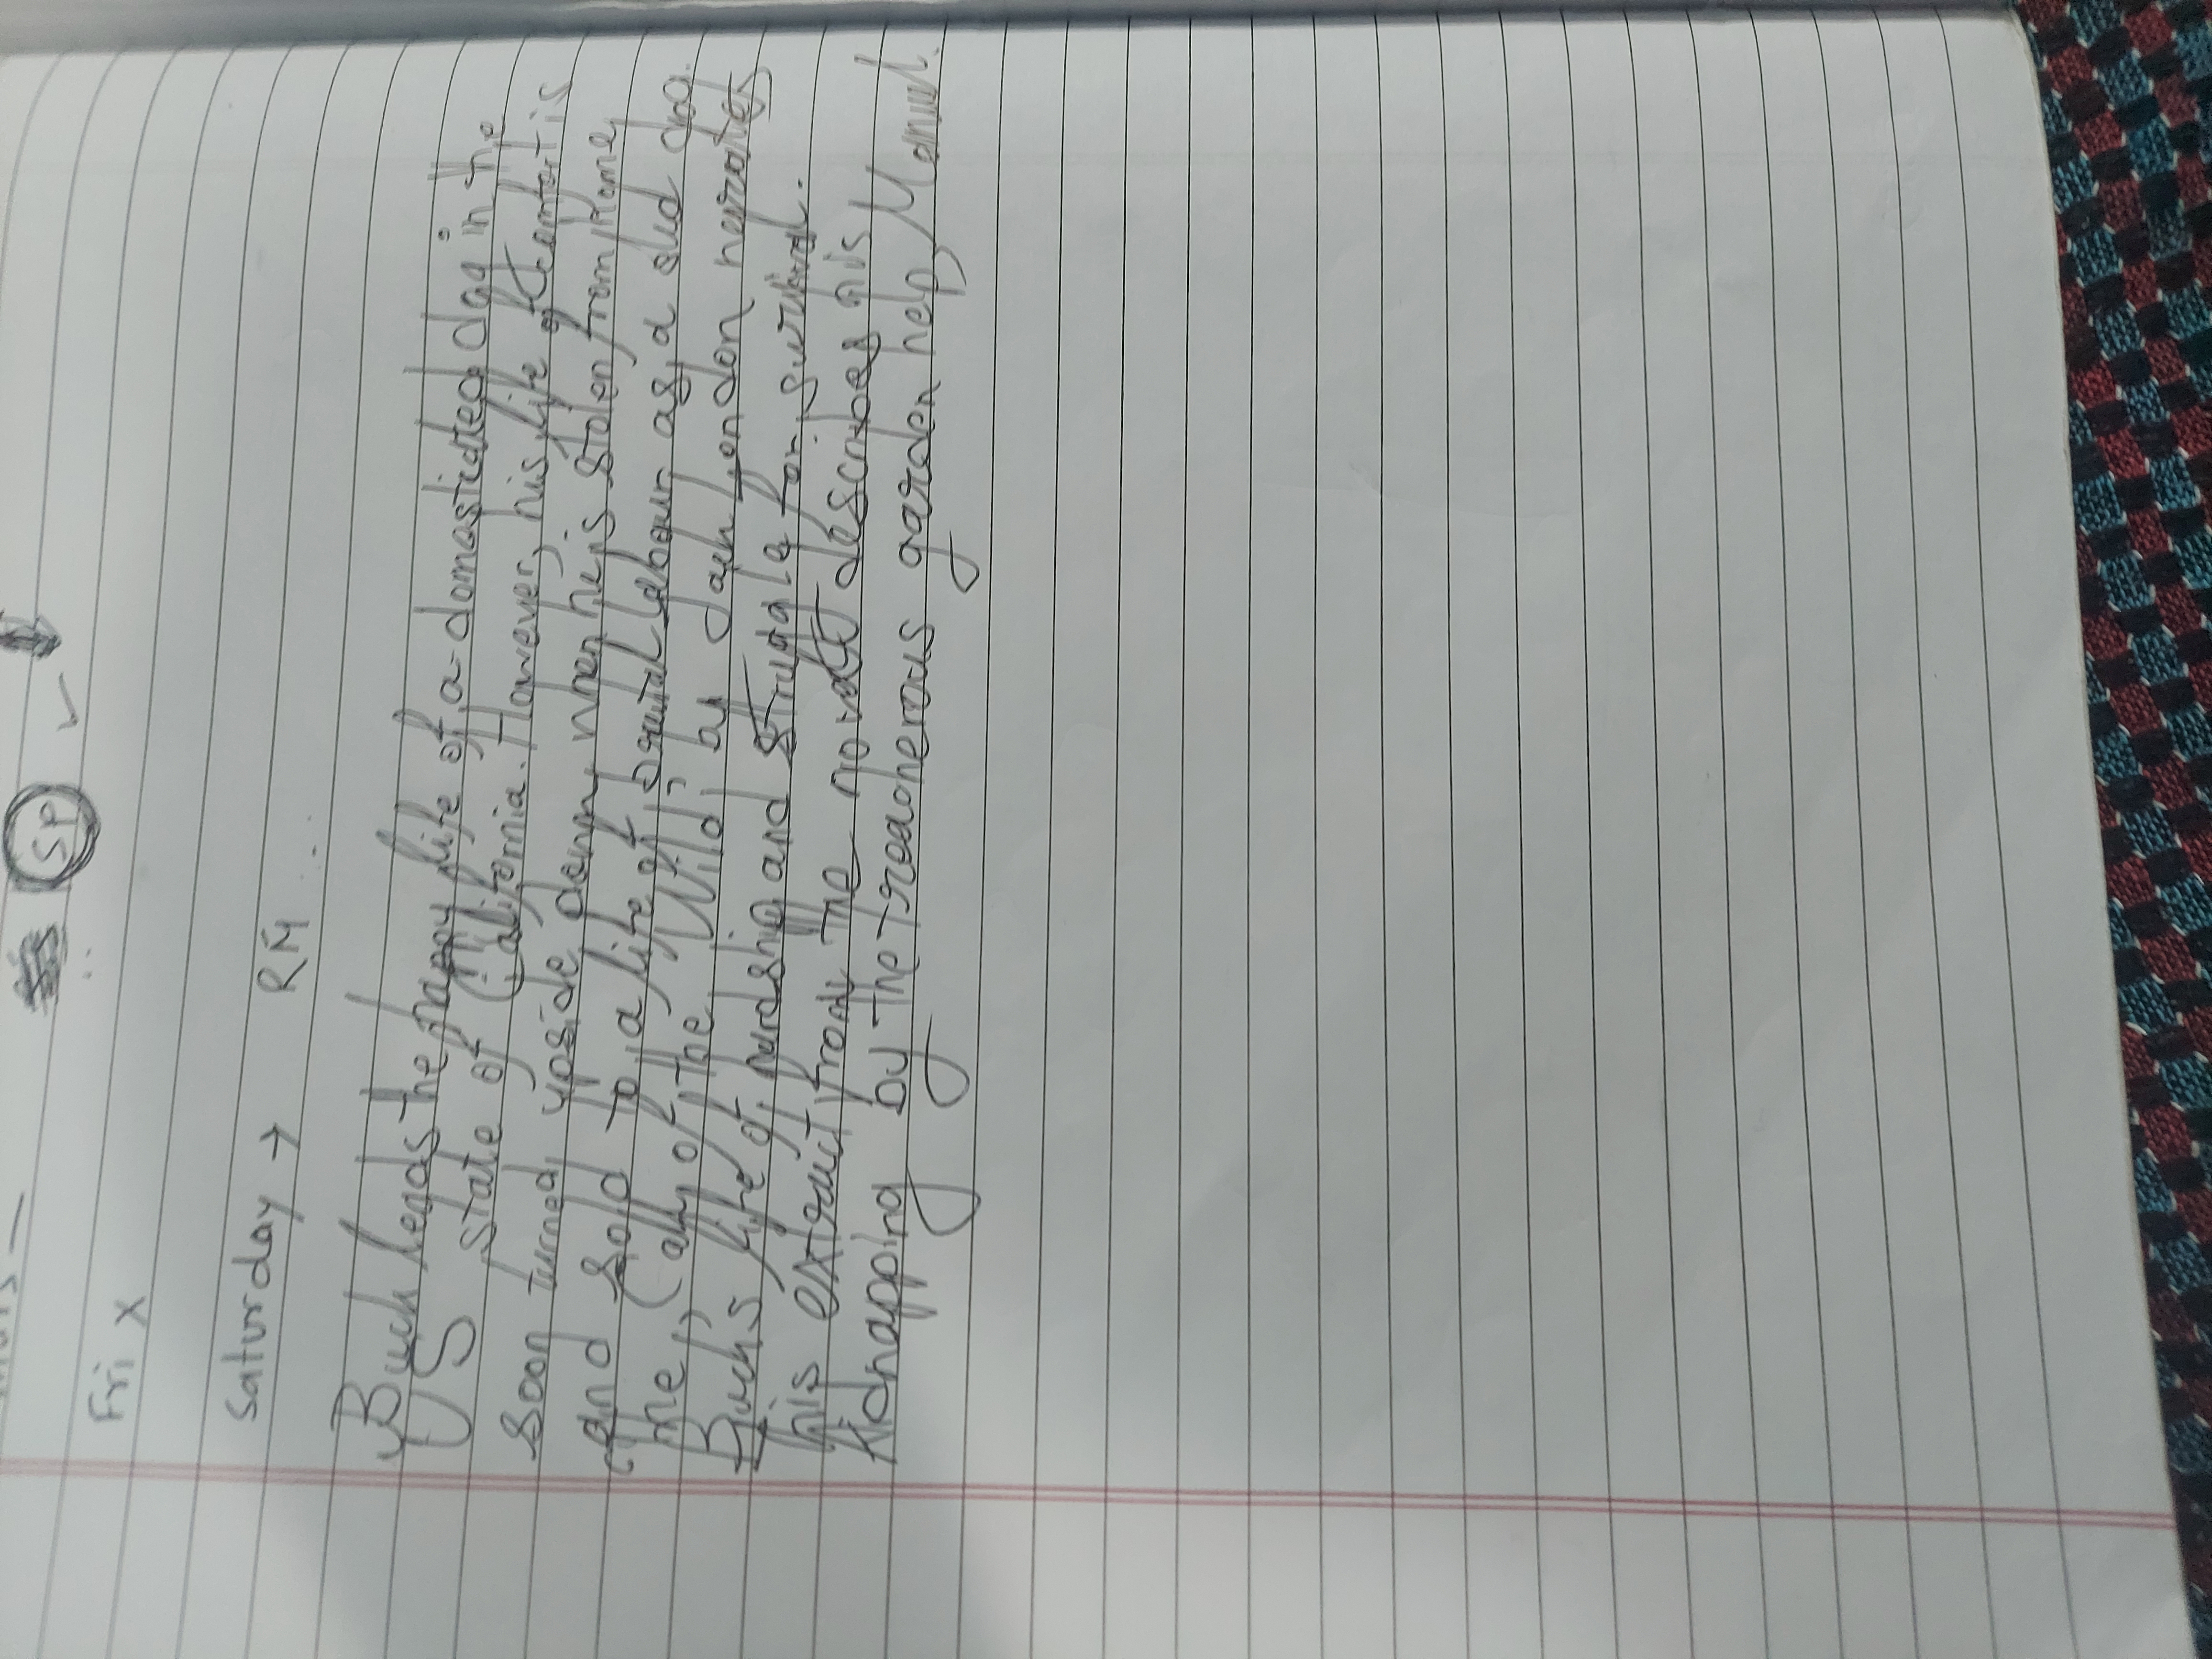 SP ✓
Fri x
Saturday → RM
Buck leads the happy life of a domasticated dog in the
US state of California. However, his life of comfort is
soon turned upside down when he is stolen from home
and sold to a life of brutal labour as a sled dog.
'The Call of the Wild' by Jack London narrates
Buck's life of hardship and struggle for survival.
This extract from the novel describes his
kidnapping by the treacherous garden help Manuel.